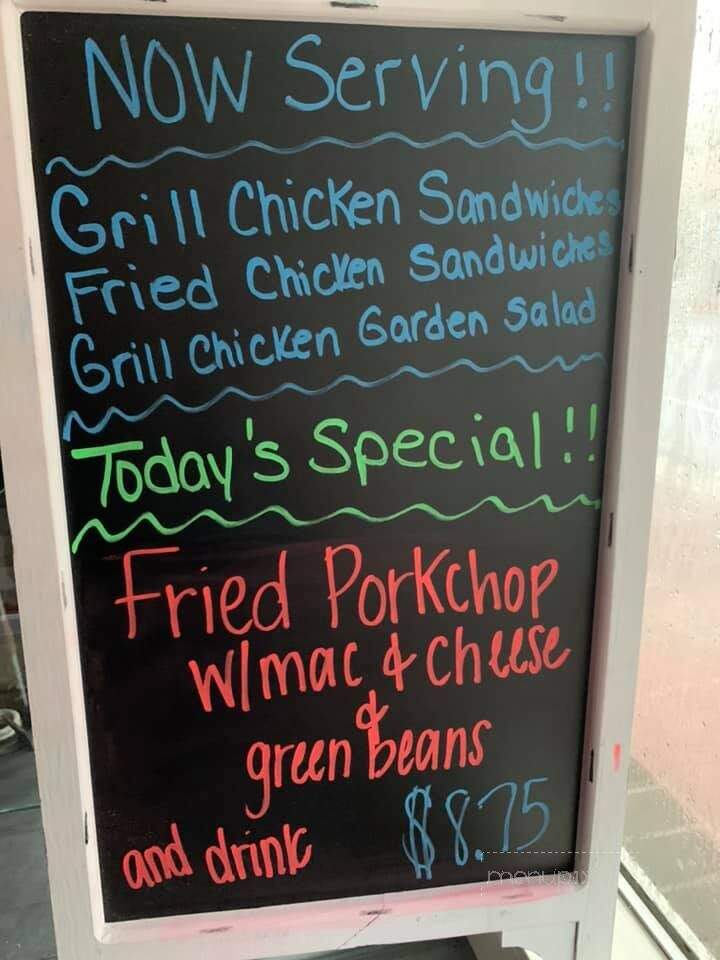 NOW Serving!!
Grill Chicken Sandwiches
Fried Chicken Sandwiches
Grill Chicken Garden Salad
Today's Special!!
Fried Porkchop
w/mac & cheese
&
green beans
and drink $8.75